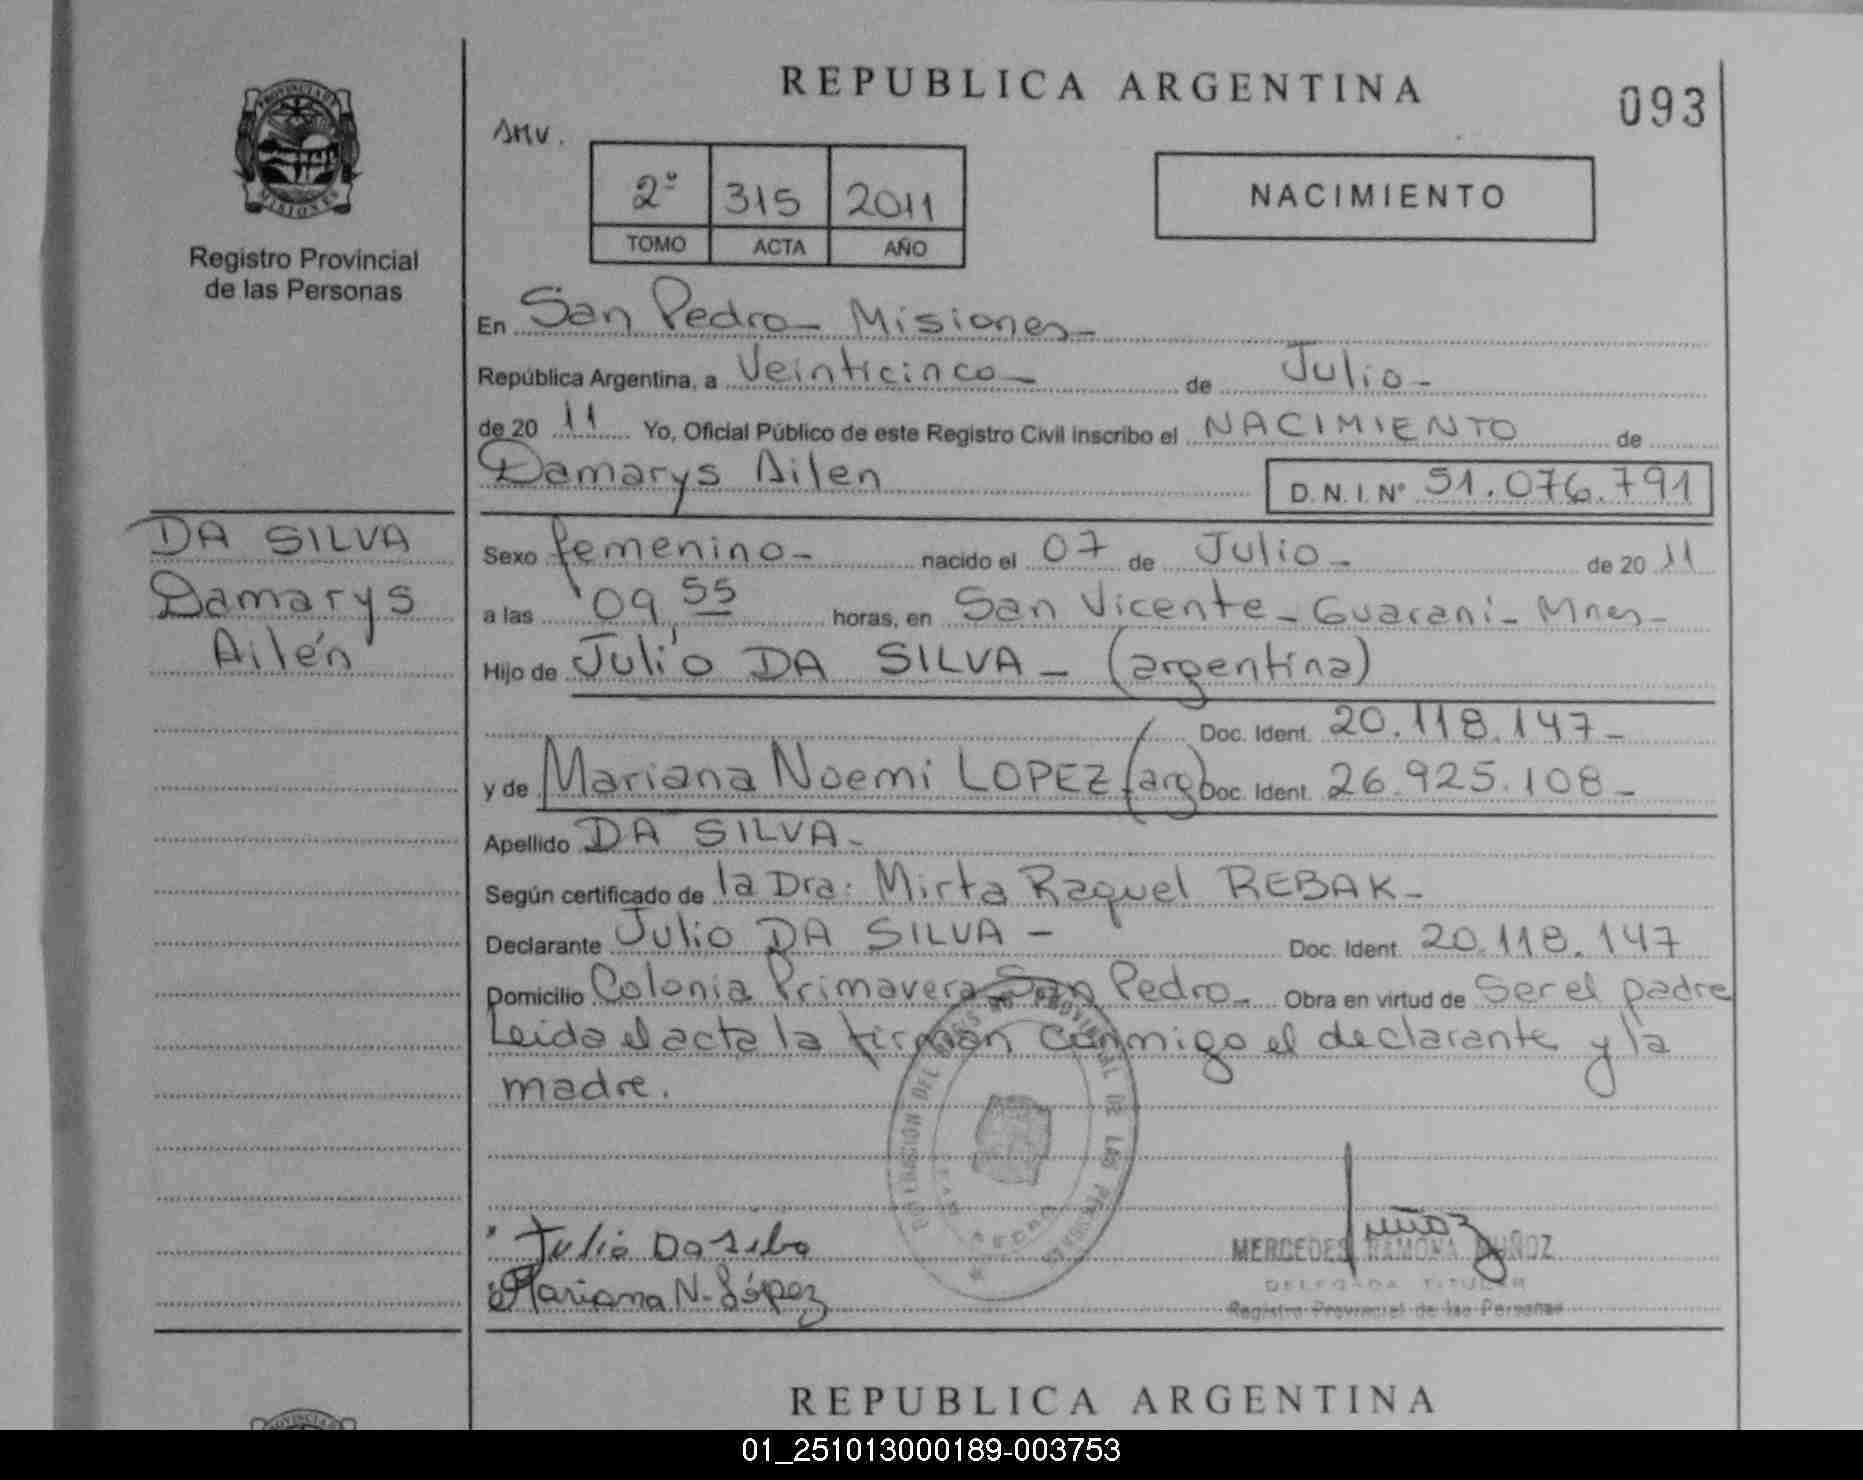 REPUBLICA ARGENTINA
093
PROVINCIA DE
MISIONES
Registro Provincial
de las Personas
2º 315 2011
TOMO ACTA AÑO
NACIMIENTO
En San Pedro - Misiones -
República Argentina, a Veinticinco - de Julio -
de 20 11 Yo, Oficial Público de este Registro Civil inscribo el NACIMIENTO de
Damarys Ailen D.N.I. Nº 51.076.791
DA SILVA
Damarys
Ailén
Sexo femenino - nacido el 07 de Julio - de 20 11
a las 09,55 horas, en San Vicente - Guaraní - Mnes -
Hijo de Julio DA SILVA - (argentina)
Doc. Ident. 20.118.147 -
y de Mariana Noemi LOPEZ (arg) Doc. Ident. 26.925.108 -
Apellido DA SILVA -
Según certificado de la Dra: Mirta Raquel REBAK -
Declarante Julio DA SILVA - Doc. Ident. 20.118.147
Domicilio Colonia Primavera San Pedro - Obra en virtud de Ser el padre
Leida el acta la firman conmigo el declarante y la
madre.
PROVINCIAL DE LAS PERSONAS
Julio Da Silva
Mariana N. López
Muñoz
MERCEDES RAMONA MUÑOZ
DELEGADA TITULAR
Registro Provincial de las Personas
REPUBLICA ARGENTINA
PROVINCIA
01_251013000189-003753